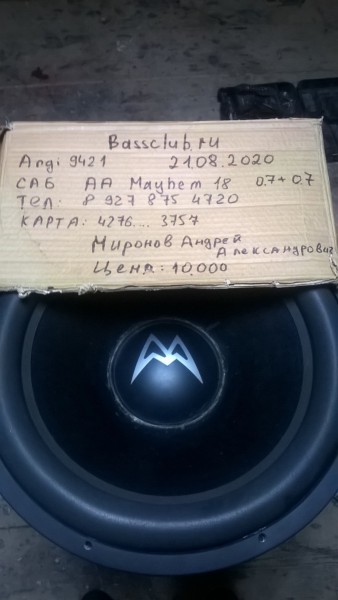 Bassclub.ru
Angi 9421 21.08.2020
САБ АА Mayhem 18 0.7+0.7
ТЕЛ: 8 927 875 4720
КАРТА: 4276.... 3757
Миронов Андрей
Александрович
Цена: 10.000